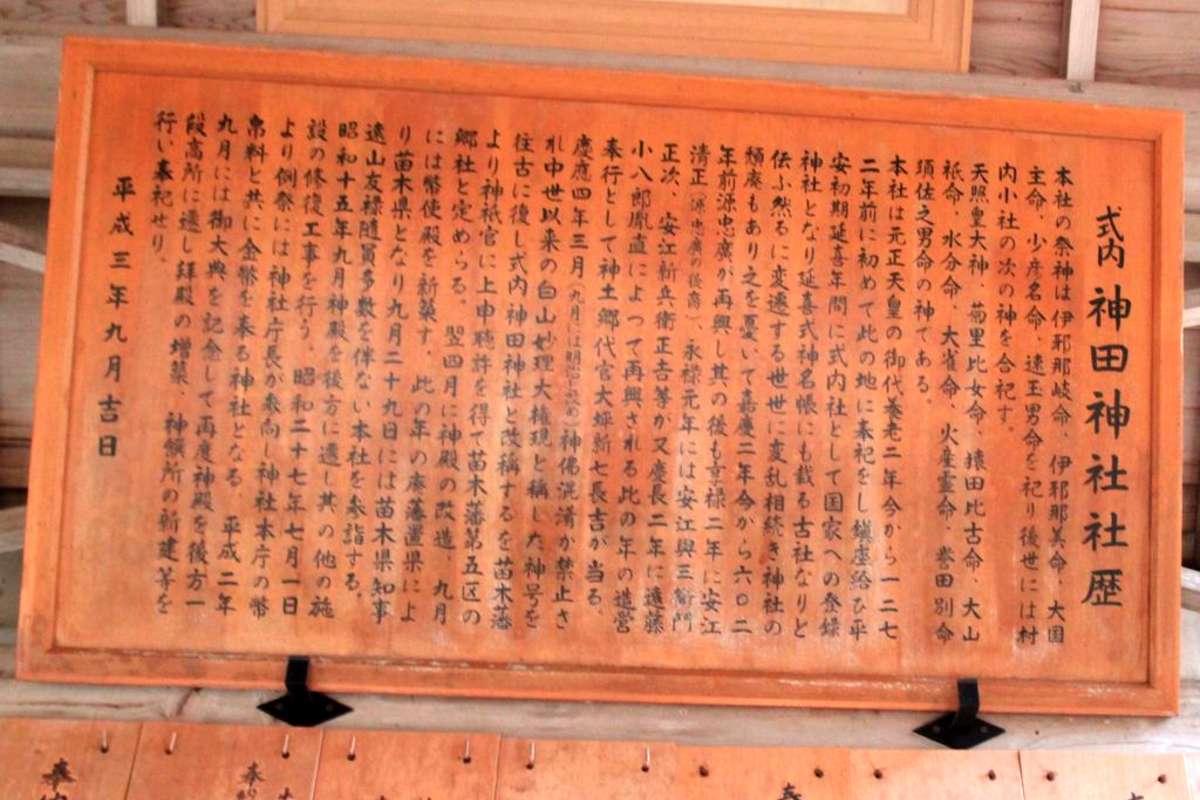 式内 神田神社社歴
本社の祭神は伊耶那岐命、伊耶那美命、大国
主命、少彦名命、速玉男命を祀り後世には村
内小社の次の神を合祀す。
天照皇大神、菊里比女命、猿田比古命、大山
祇命、水分命、大雀命、火産霊命、誉田別命
須佐之男命の神である。
本社は元正天皇の御代養老二年今から一二七
二年前に初めて此の地に奉祀をし鎮座給ひ平
安初期延喜年間に式内社として国家への登録
神社となり延喜式神名帳にも載る古社なりと
伝ふ然るに変遷する世世に変乱相続き神社の
頽廃もあり之を憂いて嘉慶二年今から六〇二
年前源忠廣が再興し其の後も享禄二年に安江
清正(源忠廣の後裔)、永禄元年には安江興三衛門
正次、安江新兵衛正吉等が又慶長二年に遠藤
小八郎胤直によって再興される比の年の造営
奉行として神土郷代官大坪新七長吉が当る
慶應四年三月(九月には明治と改め)神佛混淆が禁止さ
れ中世以来の白山妙理大権現と称した神号を
往古に復し式内神田神社と改称するを苗木藩
より神祇官に上申聴許を得て苗木藩第五区の
郷社と定めらる。翌四月に神殿の改造 九月
には幣使殿を新築す。此の年の廃藩置県によ
り苗木県となり九月二十九日には苗木県知事
遠山友禄随員多数を伴ない本社を参詣する。
昭和十五年九月神殿を後方に遷し其の他の施
設の修復工事を行う。昭和二十七年七月一日
より例祭には神社庁長が参向し神社本庁の幣
帛料と共に金幣を奉る神社となる。平成二年
九月には御大典を記念して再度神殿を後方一
段高所に遷し拝殿の増築、神饌所の新建等を
行い奉祀せり。
平成三年九月吉日
奉
奉
奉